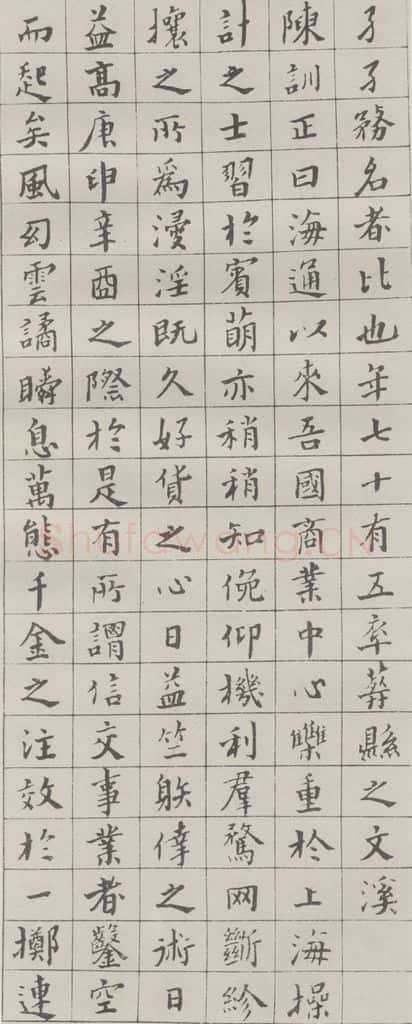 孑孑務名者比也年七十有五卒葬縣之文溪
陳訓正曰海通以來吾國商業中心重於上海操
計之士習於賓萌亦稍稍知俛仰機利羣騖网斷紾
攘之所爲漫淫既久好貨之心日益竺䠶倖之術日
益高庚申辛酉之際於是有所謂信交事業者鑿空
而起矣風幻雲譎瞬息萬態千金之注效於一擲連
Shufawang.CN